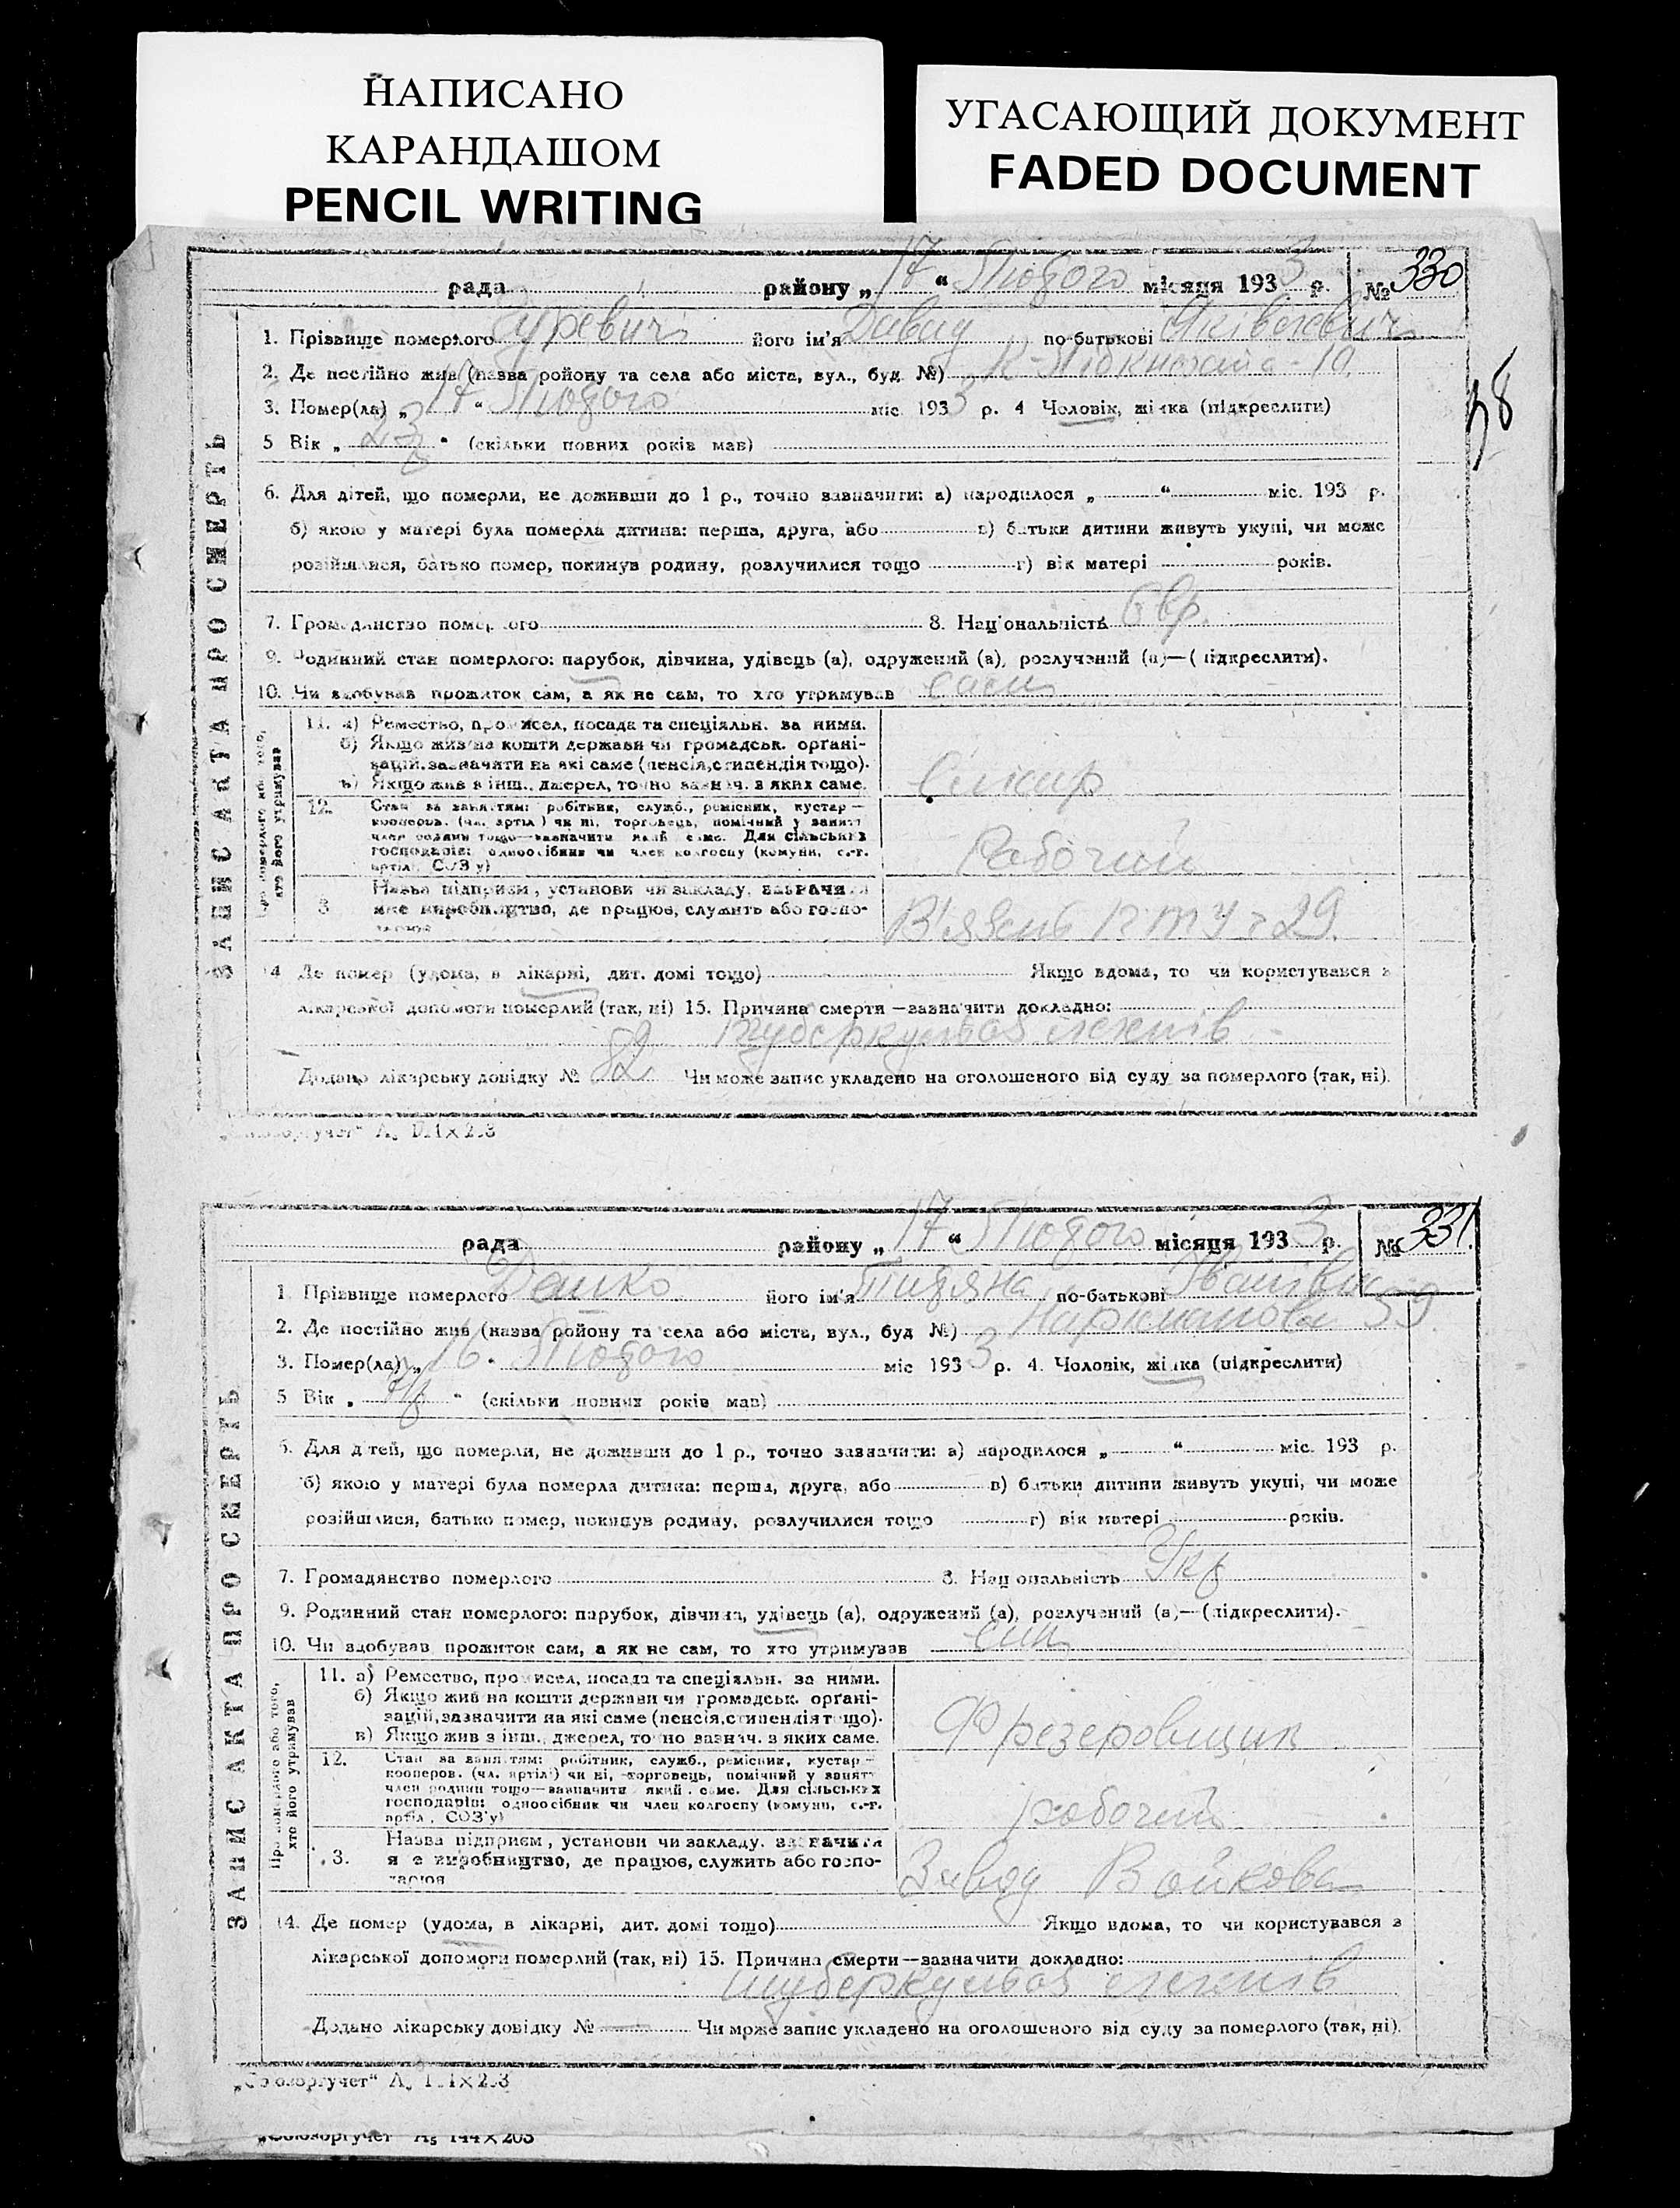 НАПИСАНО
КАРАНДАШОМ
PENCIL WRITING
УГАСАЮЩИЙ ДОКУМЕНТ
FADED DOCUMENT
рада району „ 17 “ Лютого місяця 1933 р. № 330
ЗАПИС АКТА ПРО СМЕРТЬ
1. Прізвище померлого Гуревич його ім'я Давид по-батькові
2. Де постійно жив (назва ройону та села або міста, вул., буд. №) 10.
3. Помер(ла) „ 17 “ Лютого міс. 1933 р. 4 Чоловік, жінка (підкреслити)
38
5 Вік „ 23 “ (скільки повних років мав)
6. Для дітей, що померли, не доживши до 1 р., точно зазначити: а) народилося „ “ міс. 193 р.
б) якою у матері була померла дитина: перша, друга, або в) батьки дитини живуть укупі, чи може
розійшлися, батько помер, покинув родину, розлучилися тощо г) вік матері років.
7. Громадянство померлого 8. Національність Євр.
9. Родинний стан померлого: парубок, дівчина, удівець (а), одружений (а), розлучений (а)—(підкреслити).
10. Чи здобував прожиток сам, а як не сам, то хто утримував сам
Про померлого або того, хто його утримував
11. а) Ремество, промисел, посада та спеціяльн. за ними.
б) Якщо жив на кошти держави чи громадськ. органі-
зацій, зазначити на які саме (пенсія, стипендія тощо).
в) Якщо жив з інш. джерел, точно зазнач. з яких саме.
Слюсар
12. Стан за заняттям: робітник, служб., ремісник, кустар—
кооперов. (чл. артіл.) чи ні, торговець, помічний у занятт
член родини тощо—зазначити який саме. Для сільських
господарів: одноосібник чи член колгоспу (комуни, с.-г.
артіл., СОЗ'у)
Рабочий
3 Назва підприєм., установи чи закладу, зазначити
яке виробництво, де працює, служить або госпо-
В'язень
29.
14 Де помер (удома, в лікарні, дит. домі тощо) Якщо вдома, то чи користувався з
лікарської допомоги померлий (так, ні) 15. Причина смерти—зазначити докладно:
туберкульоз легенів
Додано лікарську довідку № 82 Чи може запис укладено на оголошеного від суду за померлого (так, ні).
рада району „ 17 “ Лютого місяця 1933 р. № 331.
ЗАПИС АКТА ПРО СМЕРТЬ
1. Прізвище померлого його ім'я Тидяна по-батькові Іванівна
2. Де постійно жив (назва ройону та села або міста, вул., буд №) Наріманова 59.
3. Помер(ла) „ 16. Лютого міс 1933 р. 4. Чоловік, жінка (підкреслити)
5 Вік „ “ (скільки повних років мав)
6. Для дітей, що померли, не доживши до 1 р., точно зазначити: а) народилося „ “ міс. 193 р.
б) якою у матері була померла дитина: перша, друга, або в) батьки дитини живуть укупі, чи може
розійшлися, батько помер, покинув родину, розлучилися тощо г) вік матері років.
7. Громадянство померлого 8. Національність Укр
9. Родинний стан померлого: парубок, дівчина, удівець (а), одружений (а), розлучений (а)—(підкреслити).
10. Чи здобував прожиток сам, а як не сам, то хто утримував син
Про померлого або того, хто його утримував
11. а) Ремество, промисел, посада та спеціяльн. за ними.
б) Якщо жив на кошти держави чи громадськ. органі-
зацій, зазначити на які саме (пенсія, стипендія тощо).
в) Якщо жив з інш. джерел, точно зазнач. з яких саме.
Фрезеровщик
12. Стан за заняттям: робітник, служб., ремісник, кустар—
кооперов. (чл. артіл.) чи ні, торговець, помічний у занятт
член родини тощо—зазначити який саме. Для сільських
господарів: одноосібник чи член колгоспу (комуни, с.-г.
артіл., СОЗ'у)
робочий
3. Назва підприєм., установи чи закладу, зазначити
яке виробництво, де працює, служить або госпо-
дарює
Завод Войкова
14. Де помер (удома, в лікарні, дит. домі тощо) Якщо вдома, то чи користувався з
лікарської допомоги померлий (так, ні) 15. Причина смерти—зазначити докладно:
туберкульоз легенів
Додано лікарську довідку № — Чи може запис укладено на оголошеного від суду за померлого (так, ні).
„Союзоргучет“
„Союзоргучет“ А5 144×203